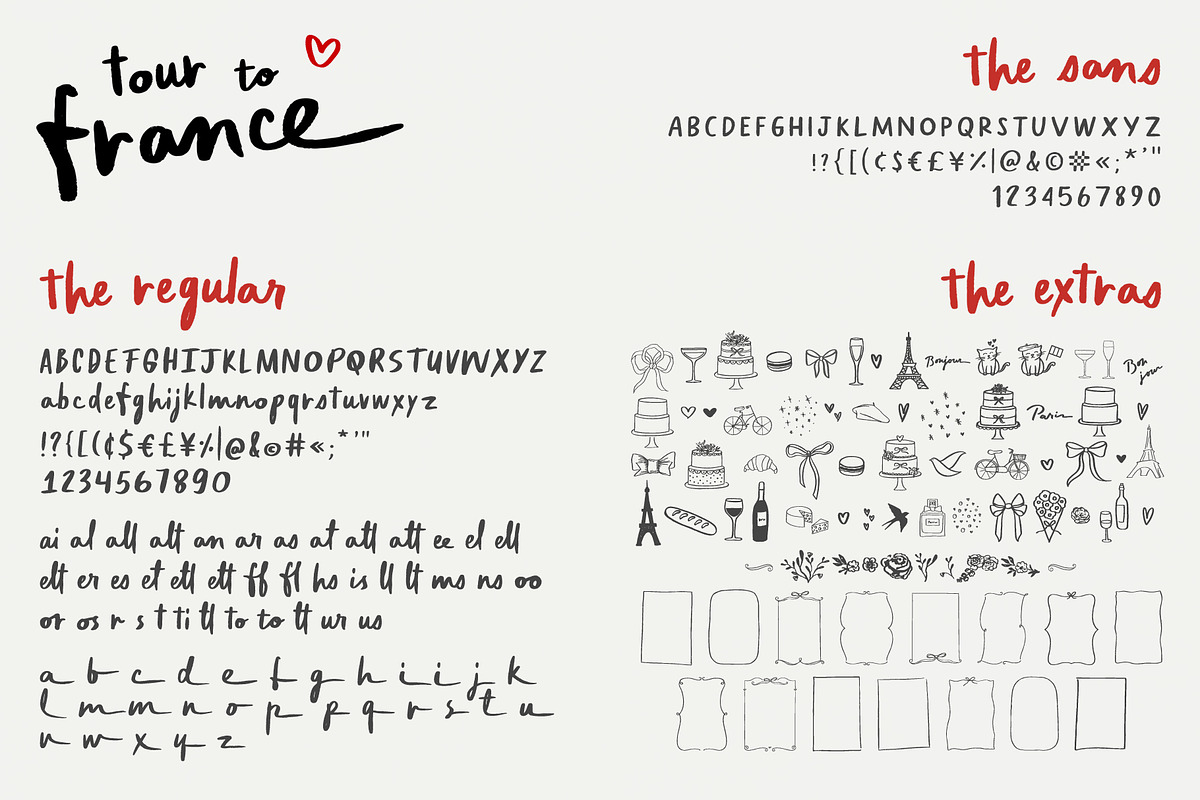 tour to
france
the sans
ABCDEFGHIJKLMNOPQRSTUVWXYZ
!?{[(¢$€£¥٪|@&©#«;*'"
1234567890
the regular
ABCDEFGHIJKLMNOPQRSTUVWXYZ
abcdefghijklmnopqrstuvwxyz
!?{[(¢$€£¥٪|@&©#«;*'"
1234567890
ai al all alt an ar as at atl att ee el ell
elt er es et etl ett ff fl hs is ll lt ms ns oo
or os r s t ti tl to to tt ur us
a b c d e f g h i i j k
l m m n o p p q r s t u
v w x y z
the extras
Bonjour
Bon
jour
Paris